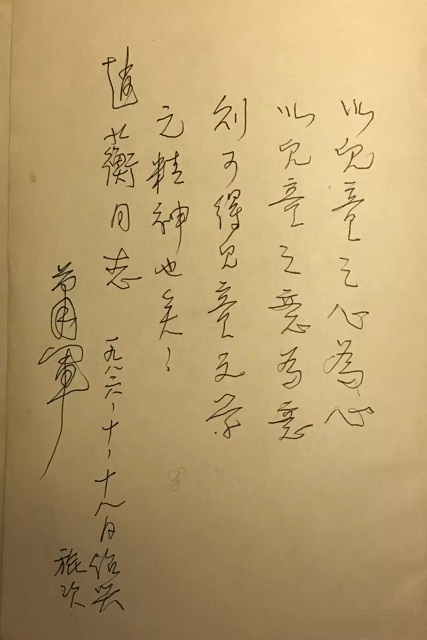 以兒童之心為心
以兒童之意為意
则可得兒童文学
元精神也矣！
趙蘅同志
一九八六、十、十八日绍兴
旅次
蕭軍